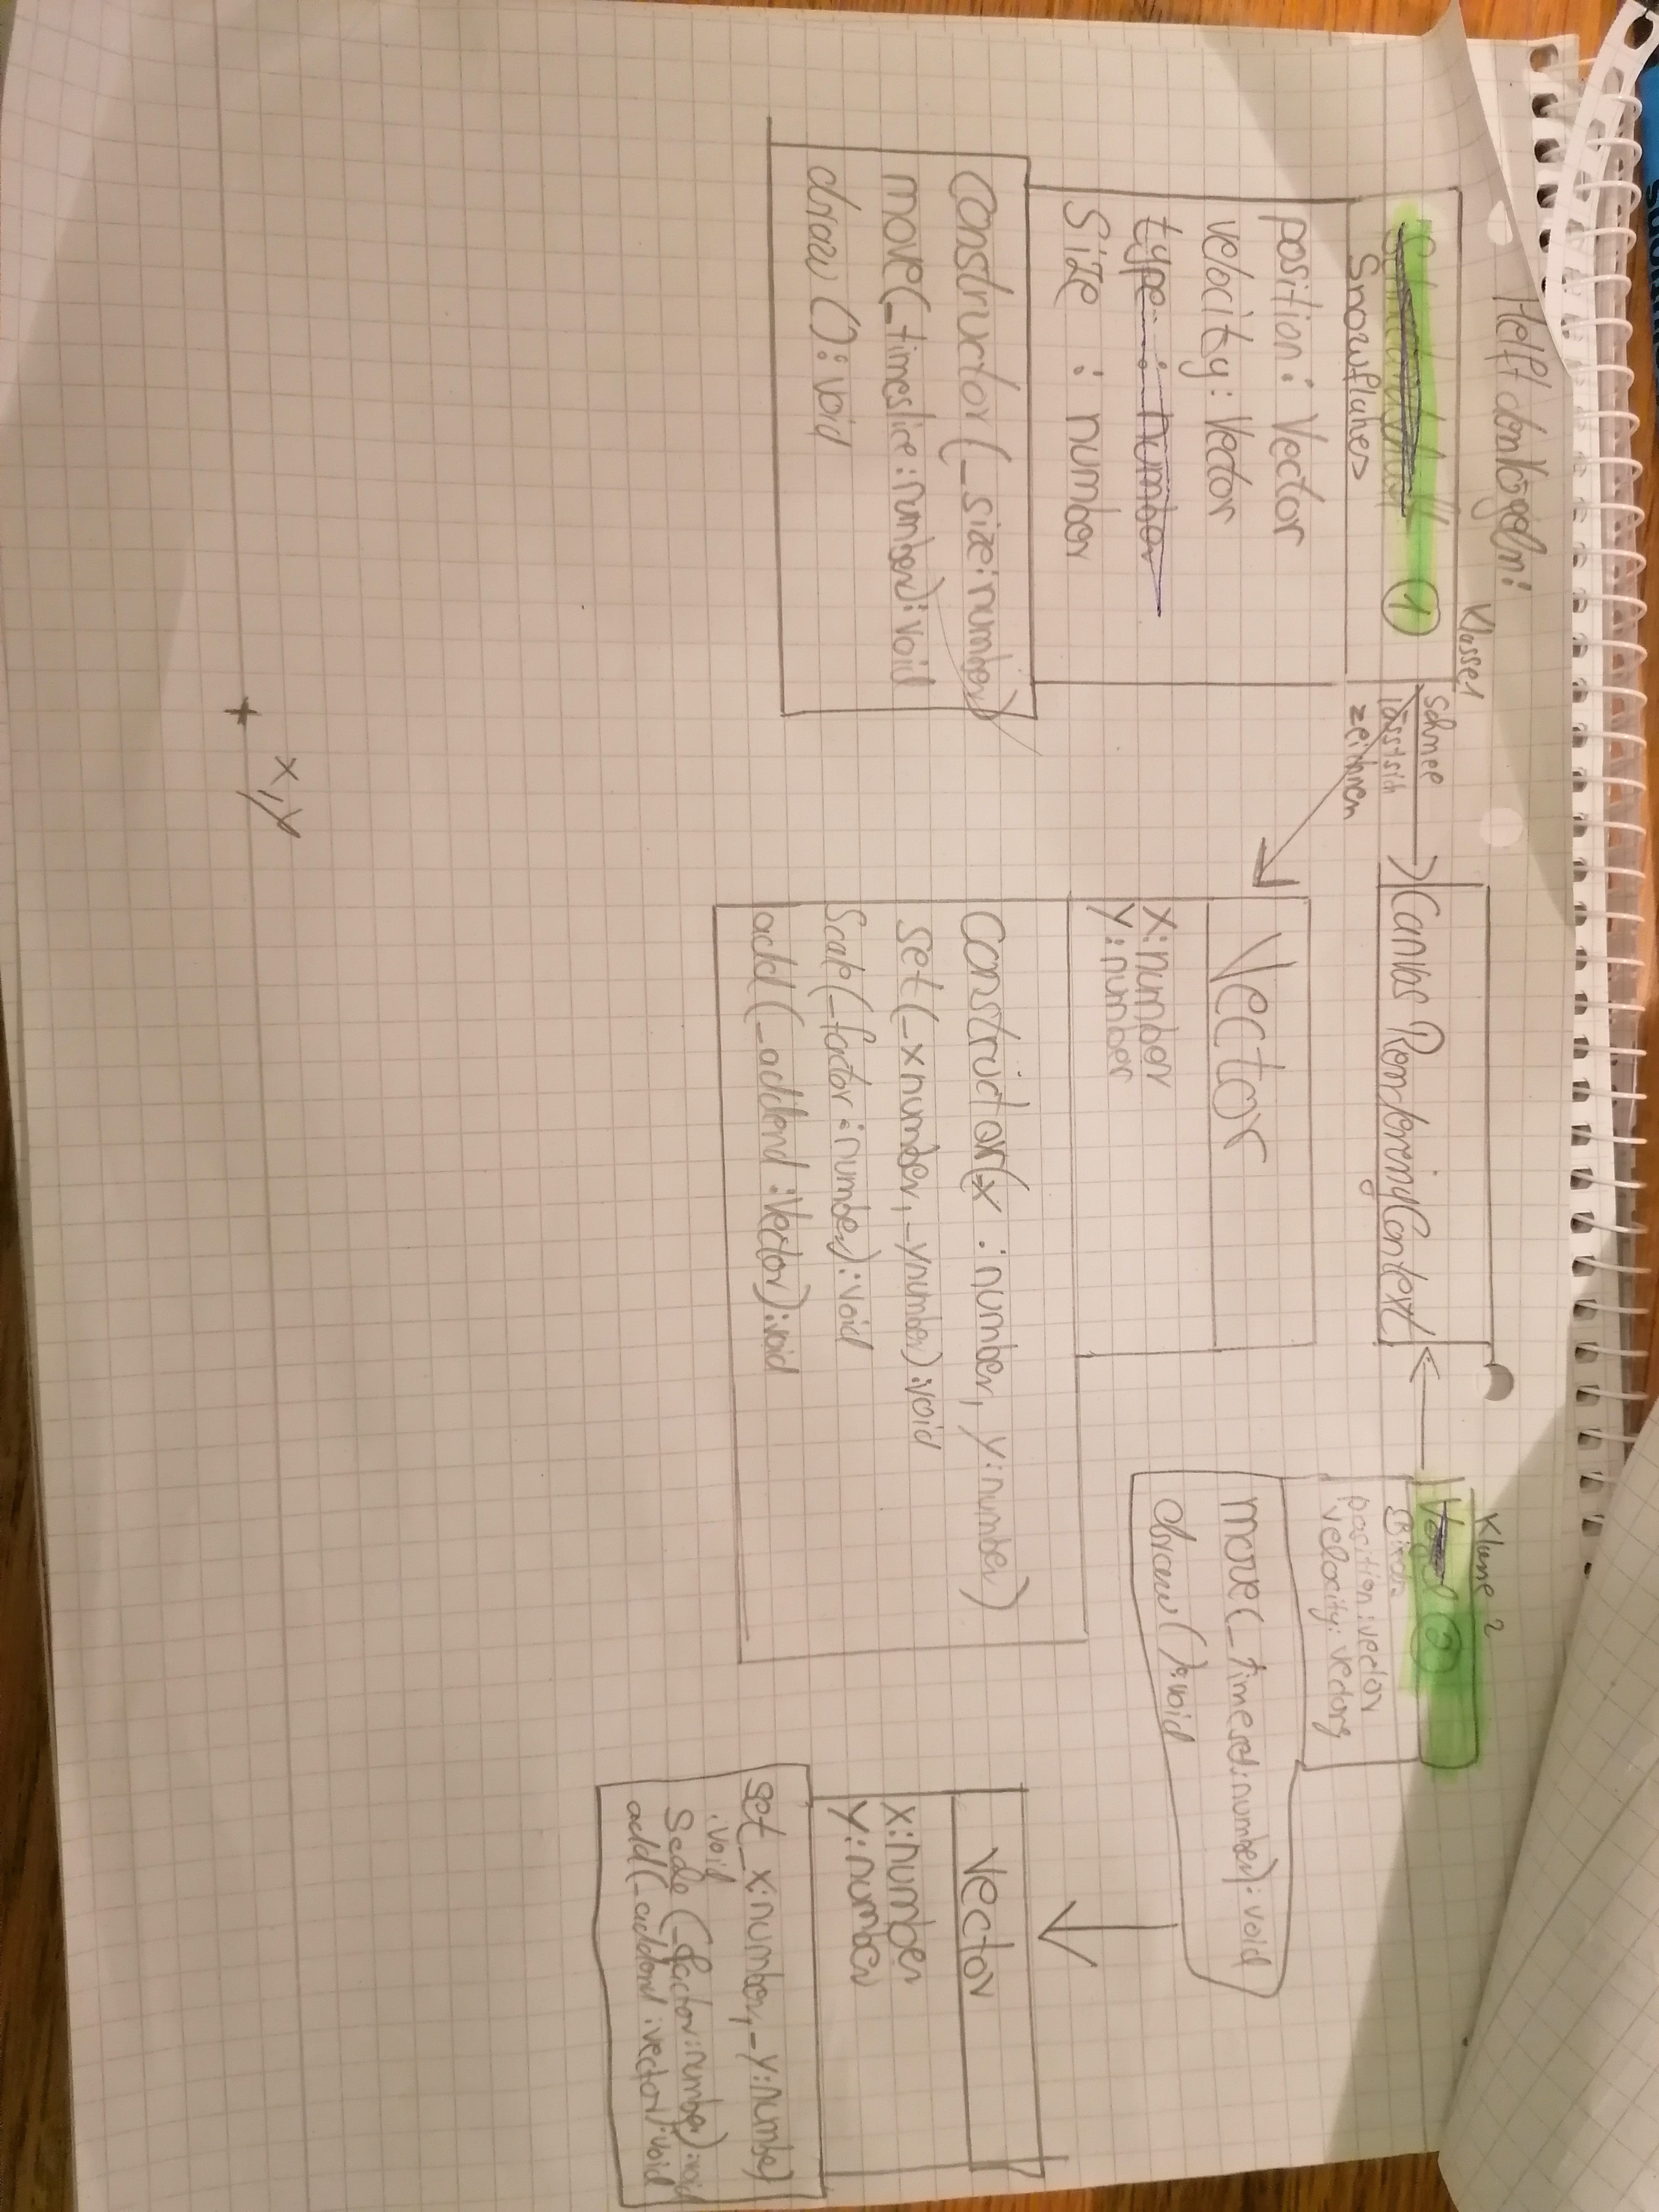 Helft den Vögeln:
Klasse 1
1
Snowflakes
position: Vector
velocity: Vector
type : number
Size : number
constructor(_size:number)
move(_timeslice:number): void
draw (): void
Schnee
lässt sich
zeichnen
Canvas RenderingContext
Vector
x:number
y:number
constructor(x :number, y:number)
set(_x number, _y number):void
Scale(_factor:number):void
add(_addend:Vector):void
Klasse 2
Vogel 2
position:vector
velocity:
move(_ :number): void
draw():void
Vector
x:number
y:number
set_x:number,_y:number)
:void
Scale (_factor:number):void
add(_addend:vector):void
x,y